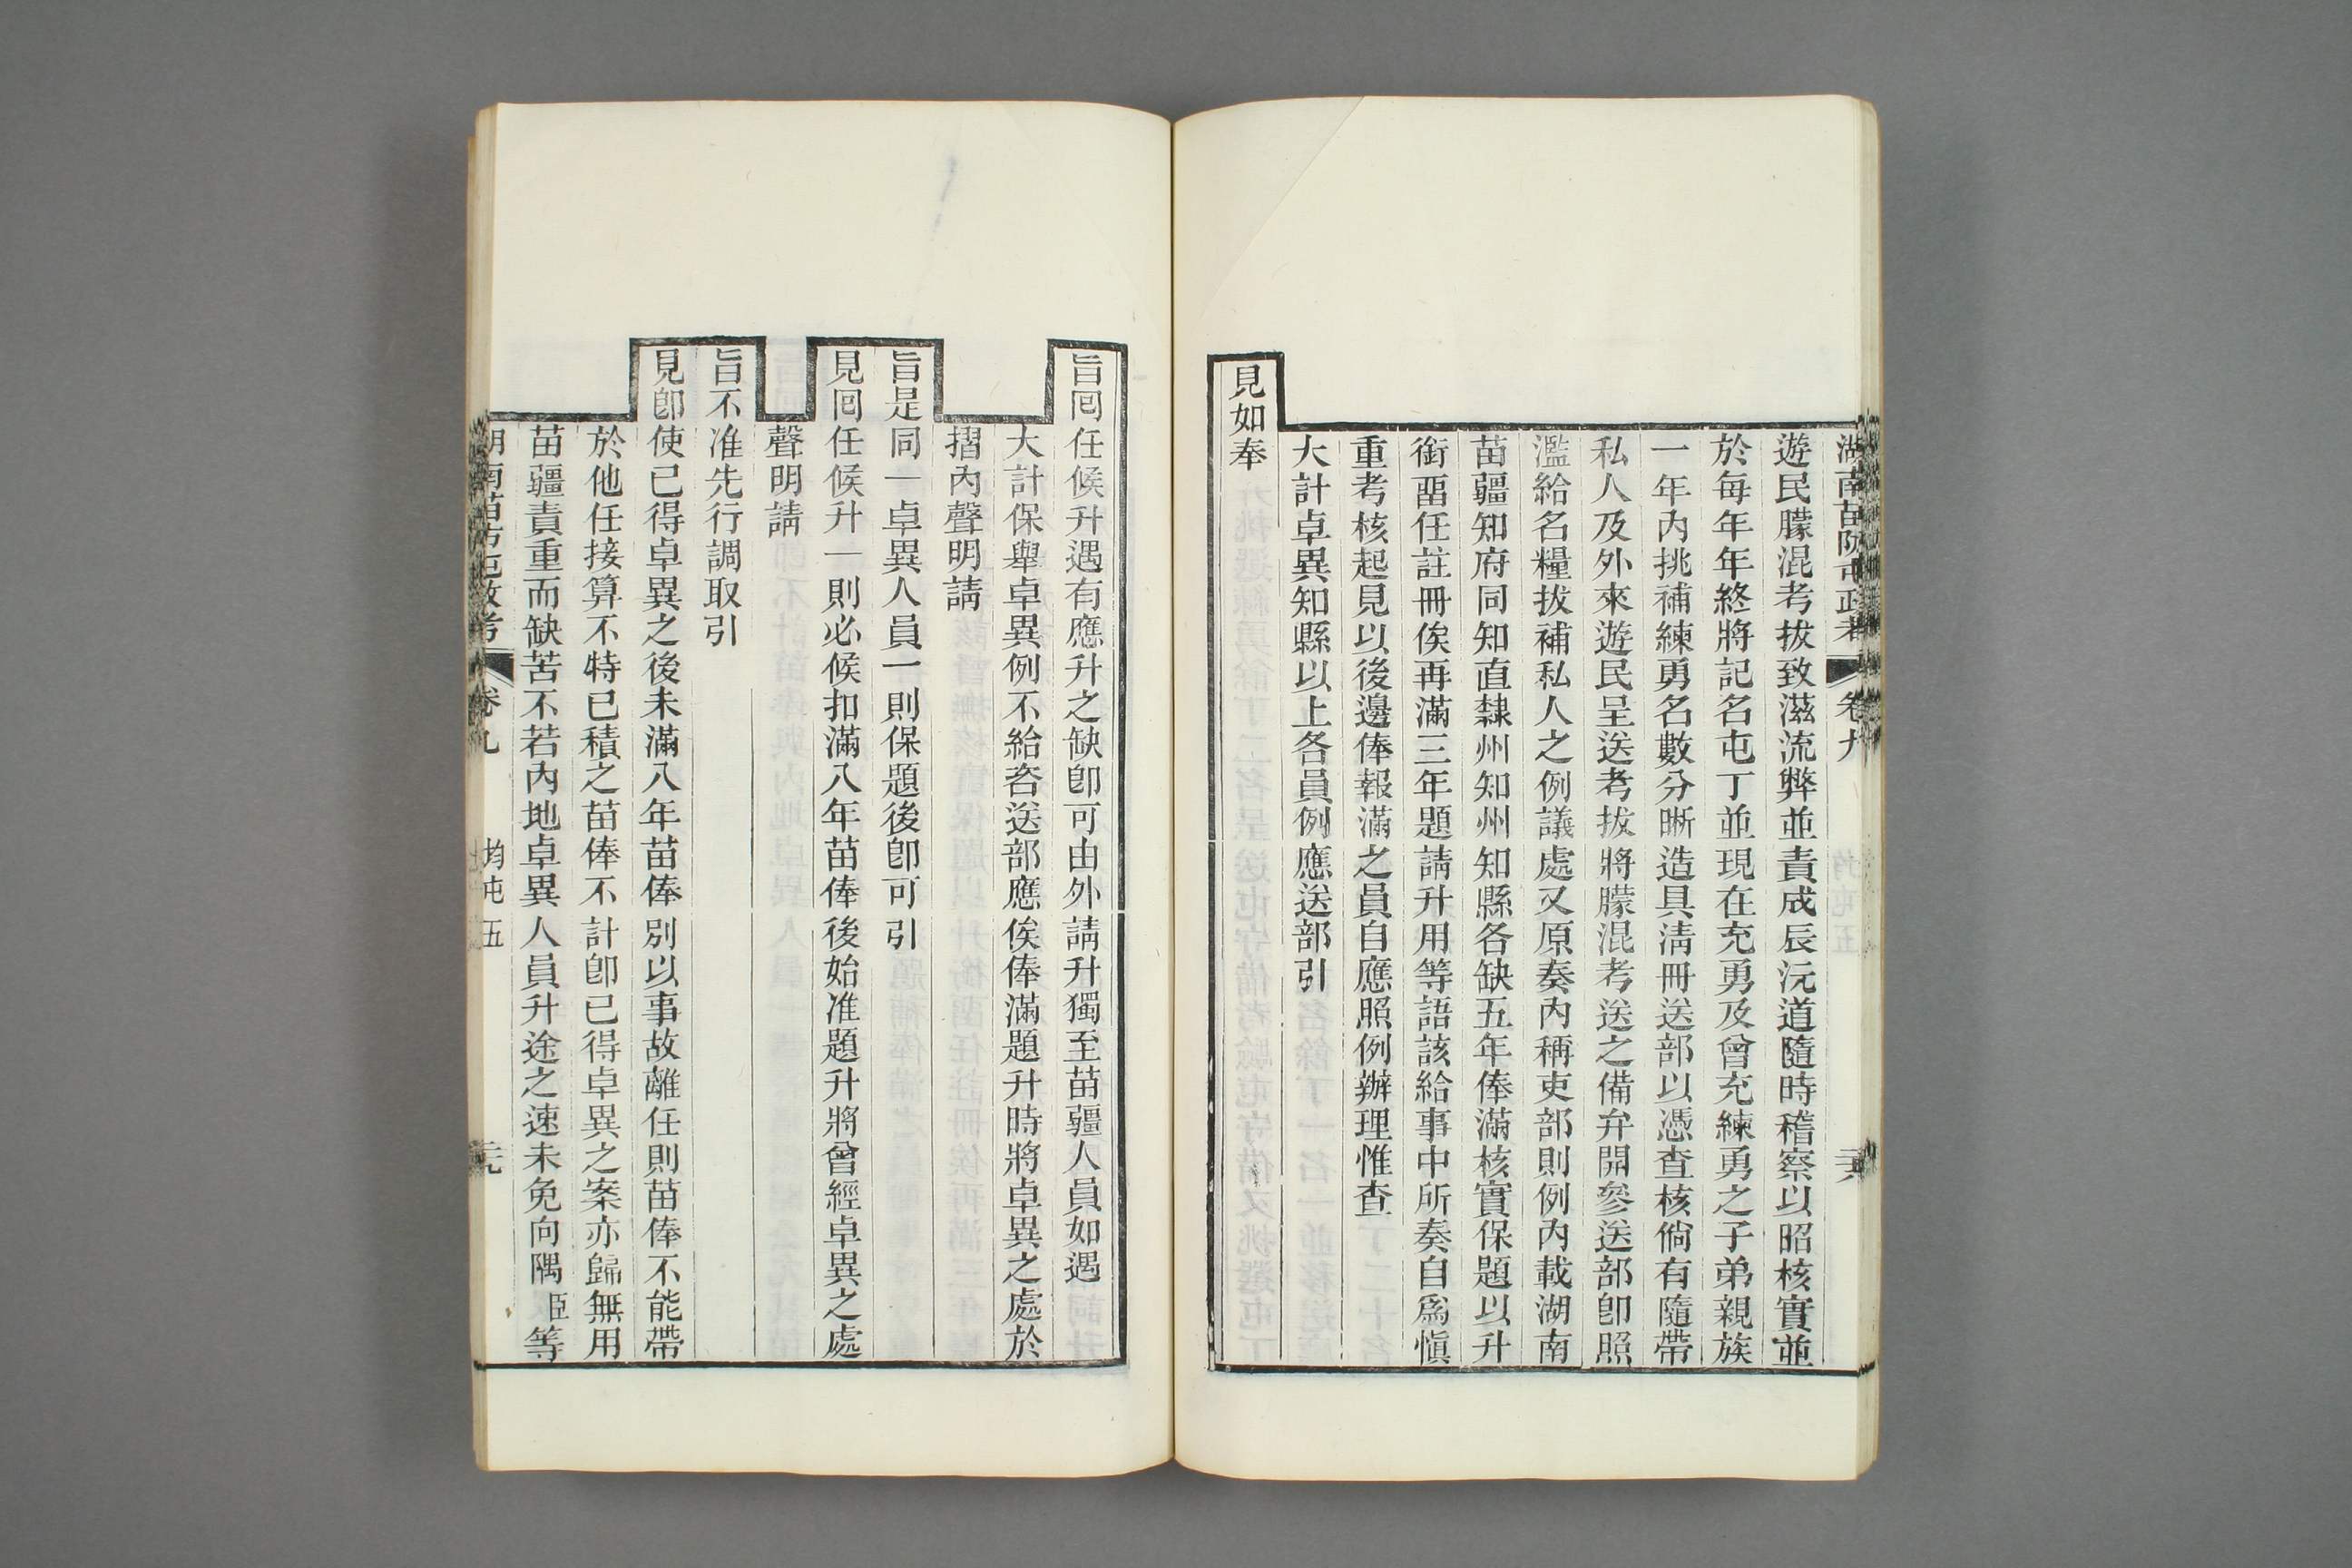 湖南苗防屯政考 卷九
遊民朦混考拔致滋流弊並責成辰沅道隨時稽察以昭核實並
於每年年終將記名屯丁並現在充勇及曾充練勇之子弟親族
一年內挑補練勇名數分晰造具清冊送部以憑查核倘有隨帶
私人及外來遊民呈送考拔將朦混考送之備弁開參送部卽照
濫給名糧拔補私人之例議處又原奏內稱吏部則例內載湖南
苗疆知府同知直隸州知州知縣各缺五年俸滿核實保題以升
銜畱任註冊俟再滿三年題請升用等語該給事中所奏自爲愼
重考核起見以後邊俸報滿之員自應照例辦理惟查
大計卓異知縣以上各員例應送部引
見如奉
旨囘任候升遇有應升之缺卽可由外請升獨至苗疆人員如遇
大計保舉卓異例不給咨送部應俟俸滿題升時將卓異之處於
摺內聲明請
旨是同一卓異人員一則保題後卽可引
見囘任候升一則必候扣滿八年苗俸後始准題升將曾經卓異之處
聲明請
旨不准先行調取引
見卽使已得卓異之後未滿八年苗俸別以事故離任則苗俸不能帶
於他任接算不特已積之苗俸不計卽已得卓異之案亦歸無用
苗疆責重而缺苦不若內地卓異人員升途之速未免向隅臣等
湖南苗防屯政考 卷九 均屯五 元